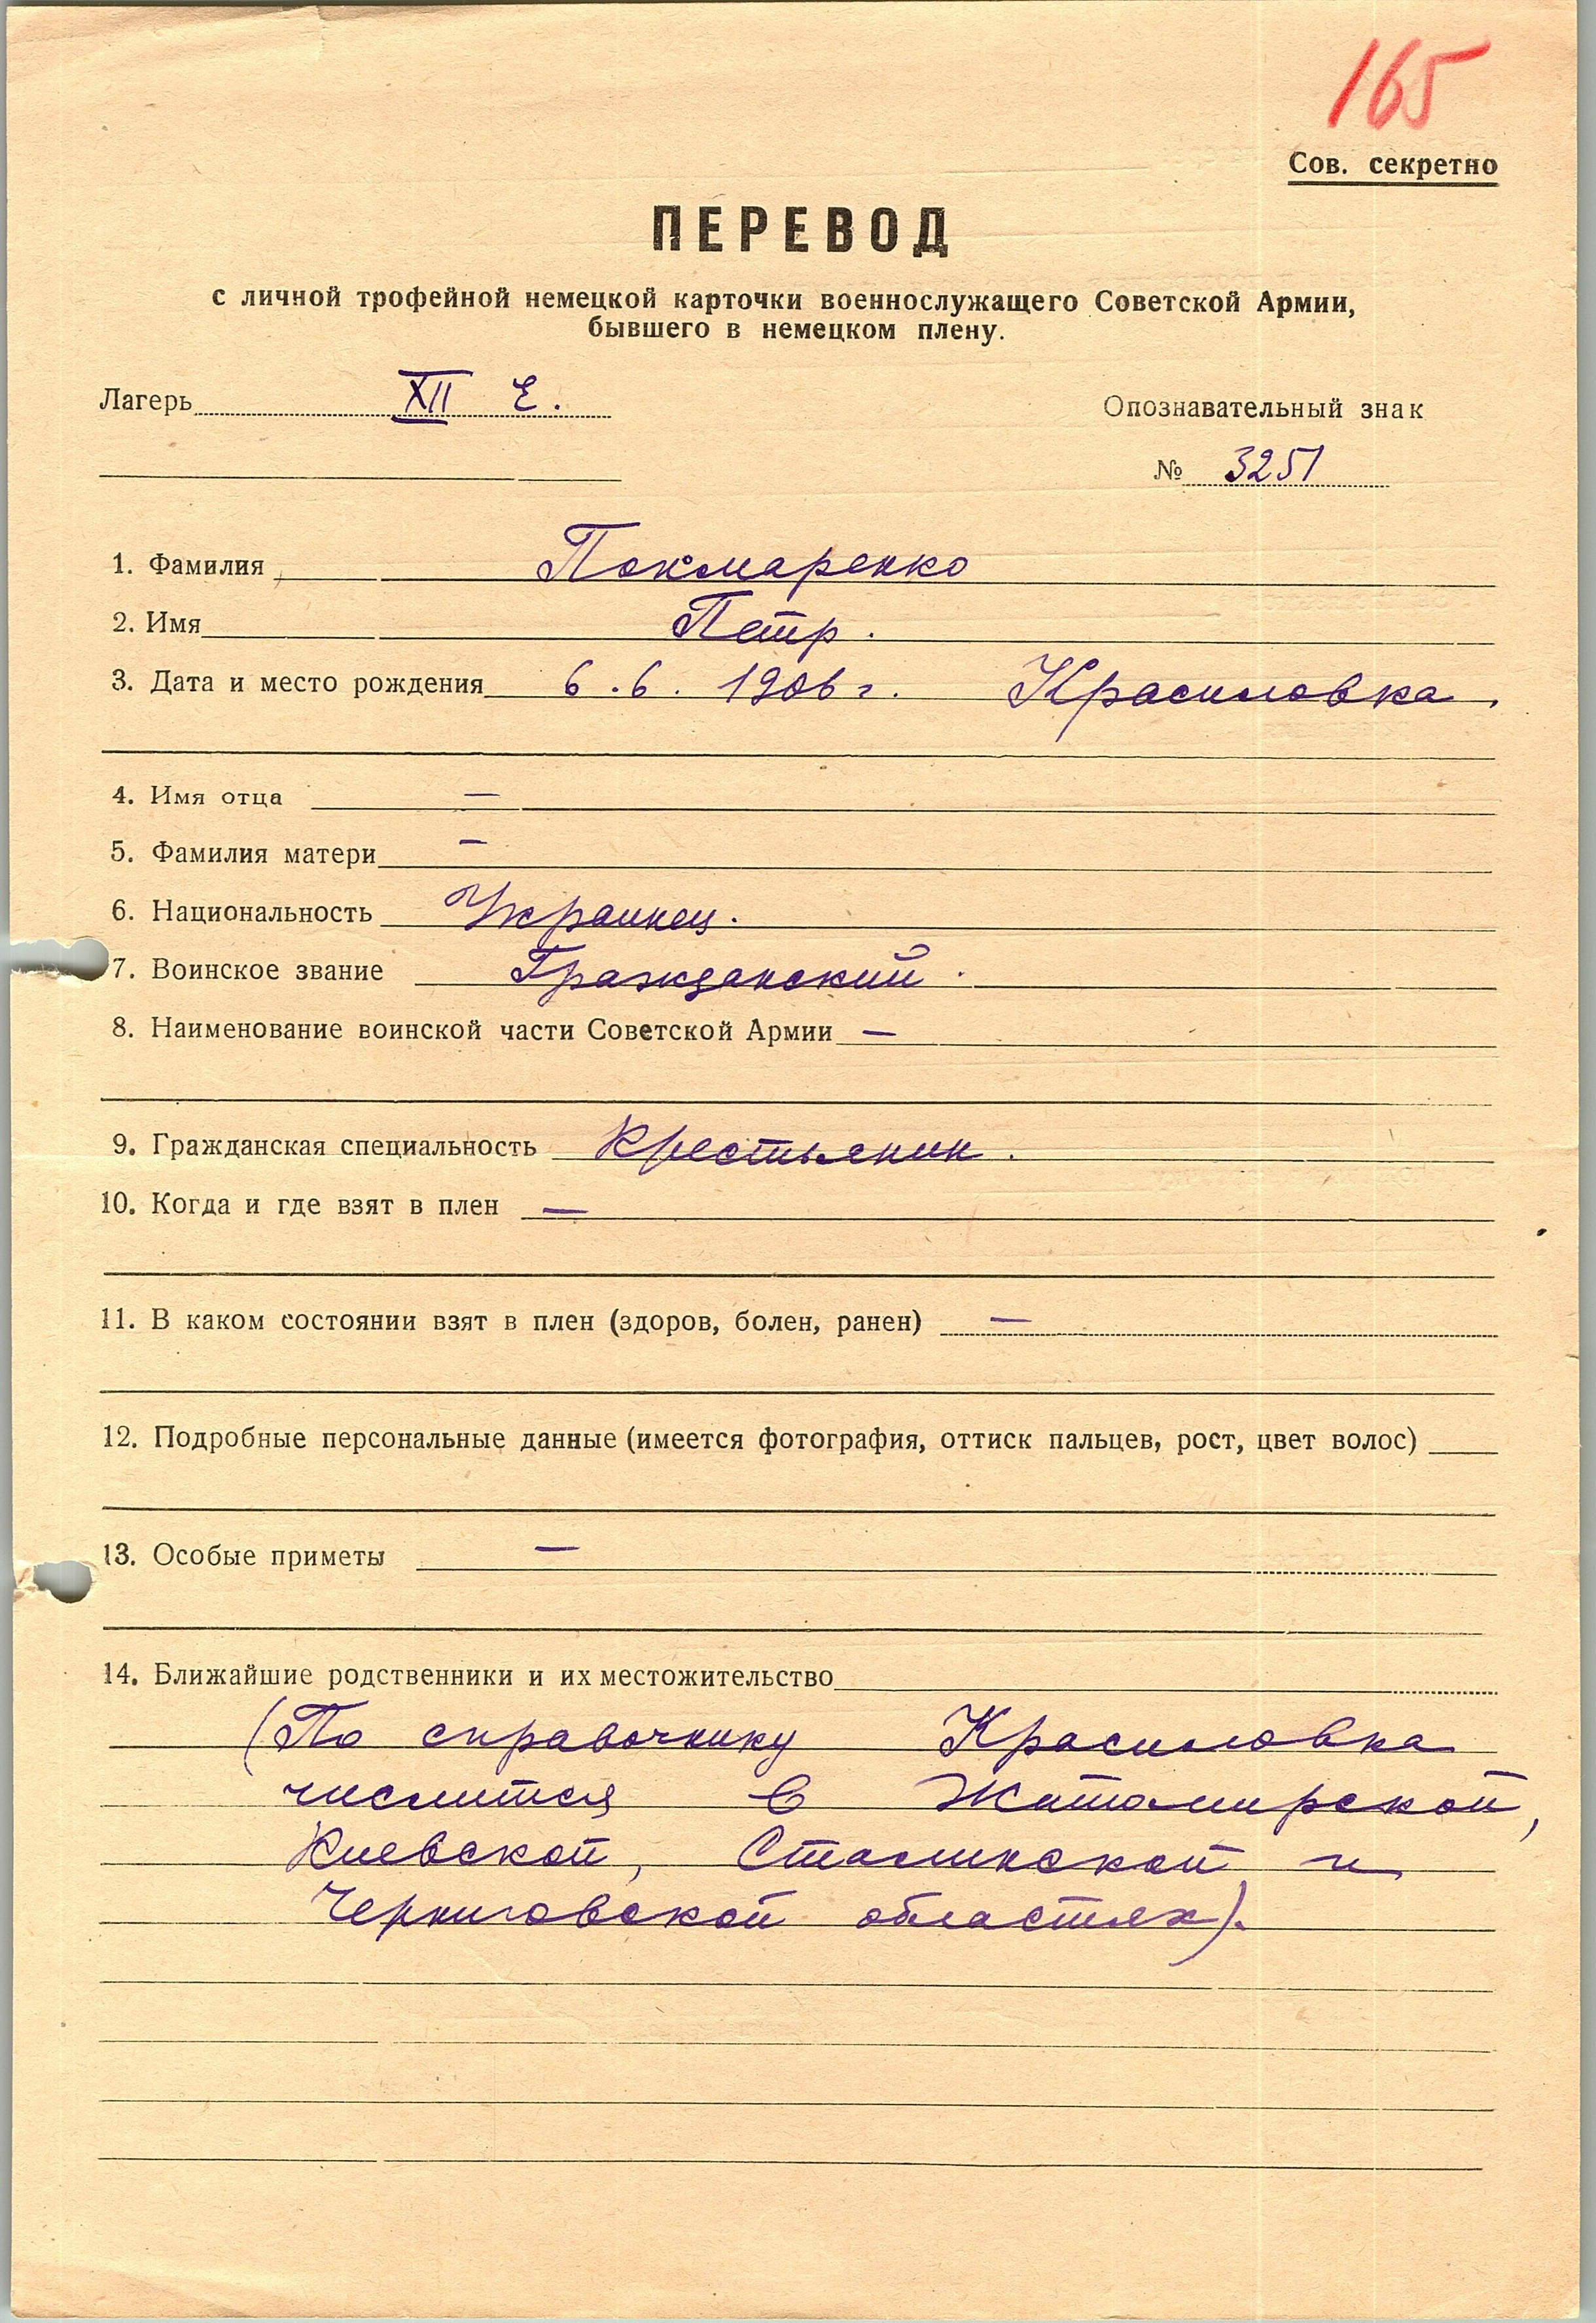 165
Сов. секретно
ПЕРЕВОД
с личной трофейной немецкой карточки военнослужащего Советской Армии,
бывшего в немецком плену.
Лагерь XII Е.
Опознавательный знак
№ 3251
1. Фамилия Покмаренко
2. Имя Петр.
3. Дата и место рождения 6.6.1906 г. Красиловка.
4. Имя отца —
5. Фамилия матери —
6. Национальность Украинец.
7. Воинское звание Гражданский.
8. Наименование воинской части Советской Армии —
9. Гражданская специальность Крестьянин.
10. Когда и где взят в плен —
11. В каком состоянии взят в плен (здоров, болен, ранен) —
12. Подробные персональные данные (имеется фотография, оттиск пальцев, рост, цвет волос)
13. Особые приметы —
14. Ближайшие родственники и их местожительство
(По справочнику Красиловка
числится в Житомирской,
Киевской, Сталинской и
Черниговской областях).